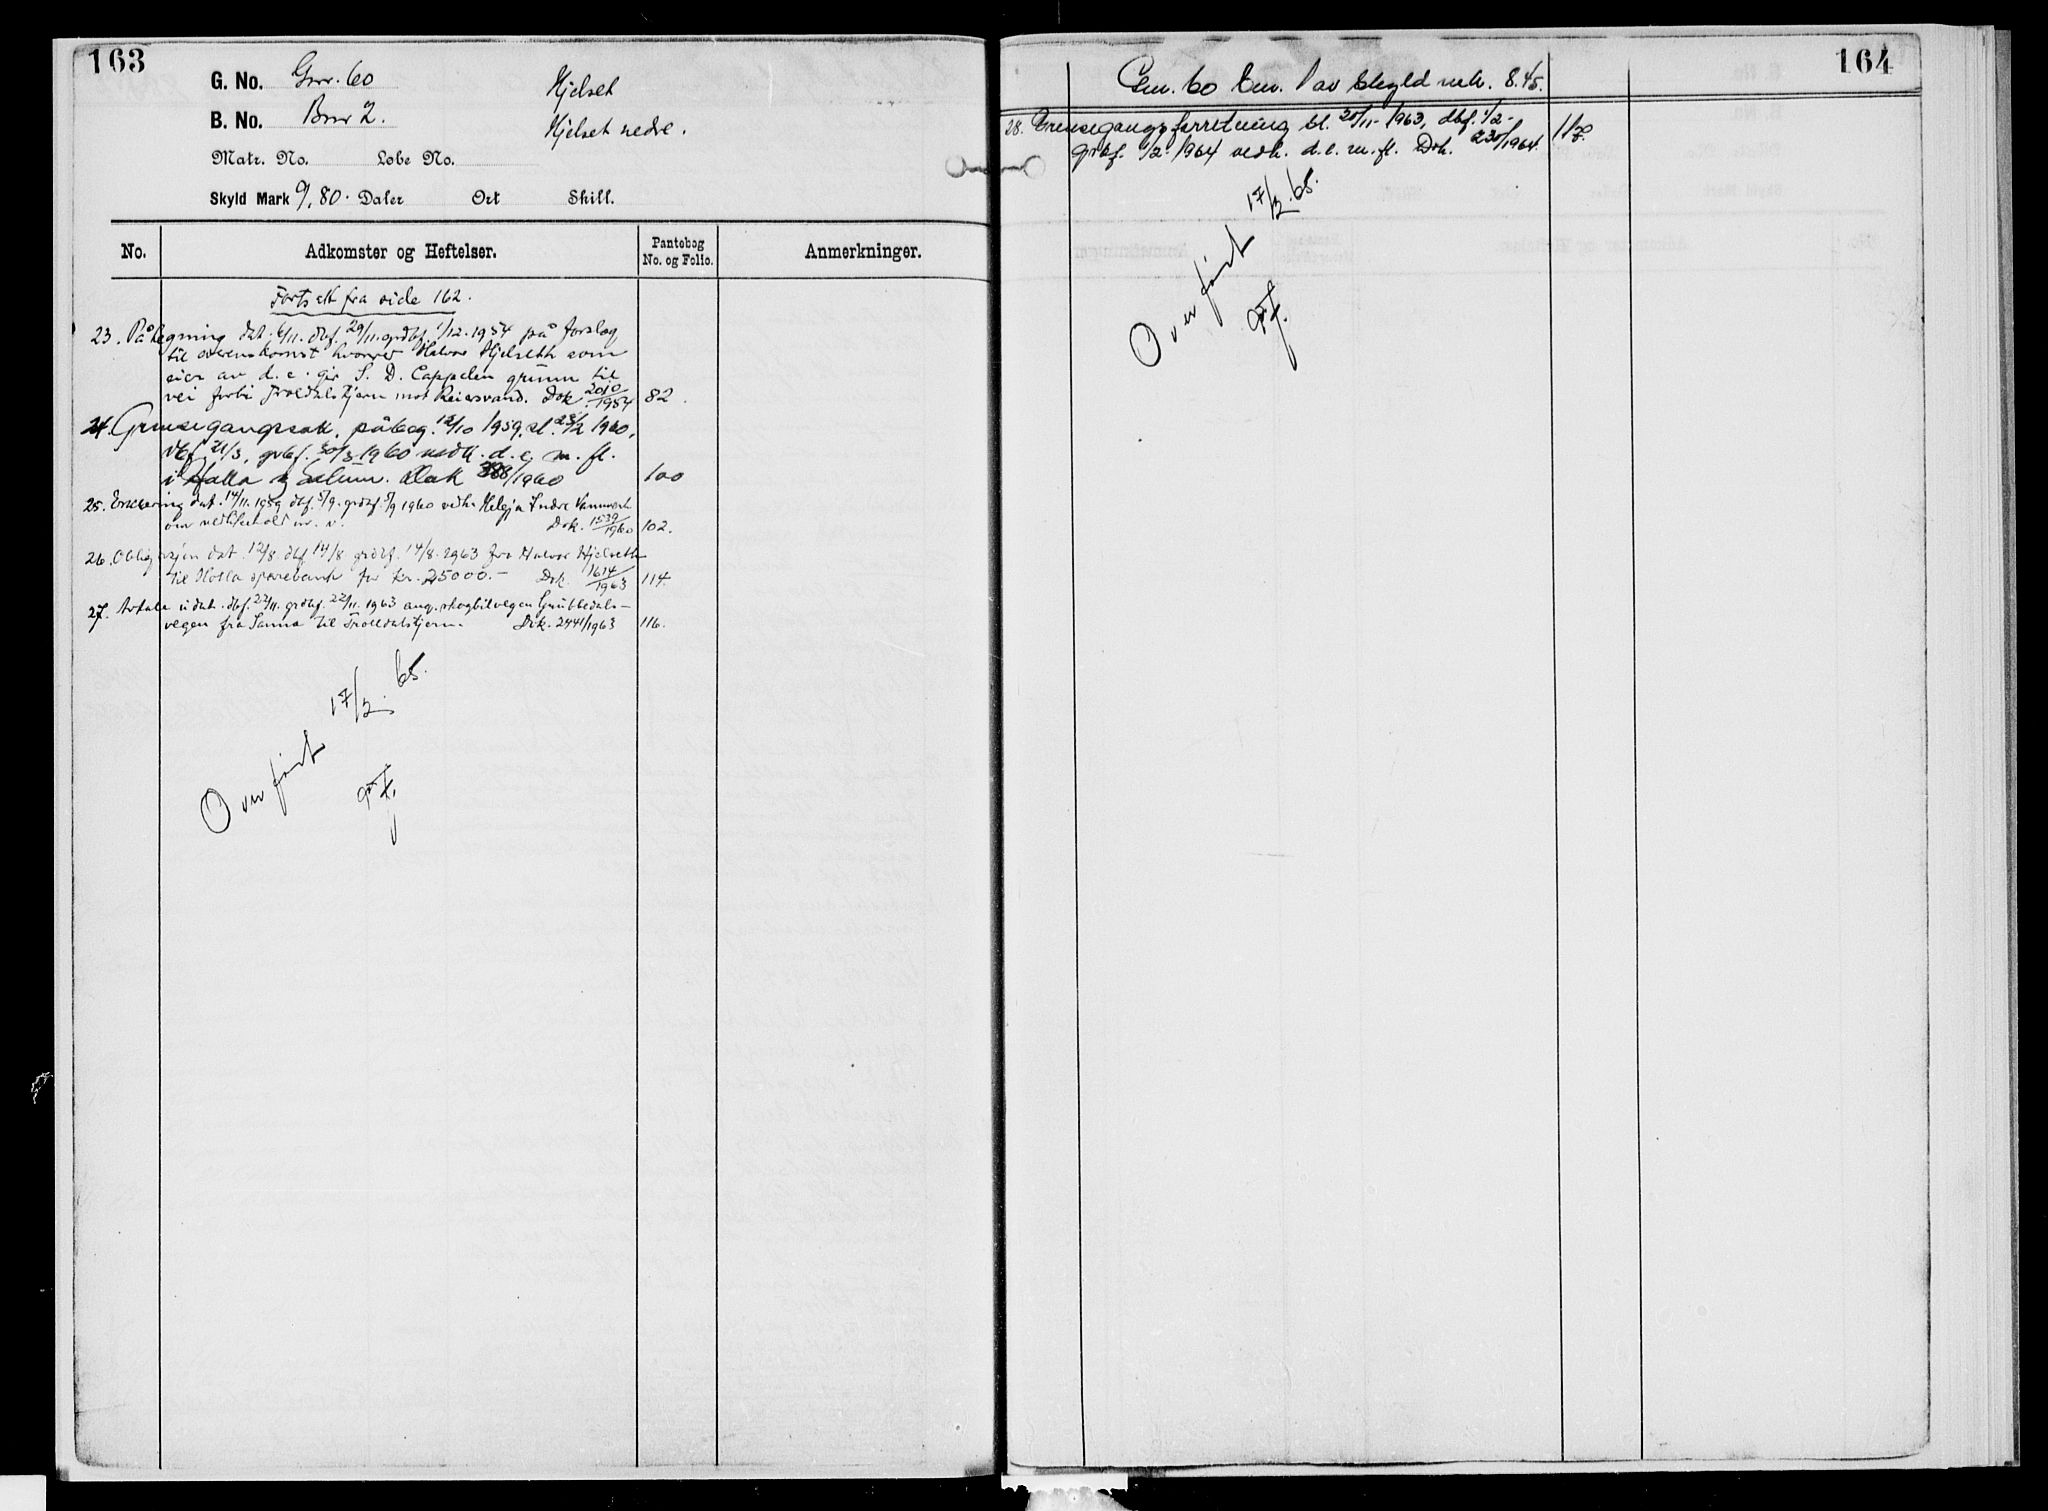 163
G. No. Gnr. 60
Hjelset
B. No. Bnr 2.
Hjelset nedre.
Matr. No. Løbe No.
Skyld Mark 9,80. Daler Ort Skill.
No. Adkomster og Heftelser. Pantebog No. og Folio. Anmerkninger.
Fortsatt fra side 162.
23. Påtegning dat. 6/11. dbf. 29/11. grdbf. 1/12. 1954 på forslag
til overenskomst hvorved Halvor Hjelseth som
eier av d. e. gir S. D. Cappelen grunn til
vei forbi Troldalstjern mot Reiersvand. Dok 2010/1954 82.
24. Grensegangssak, påbeg. 12/10 1959, sl. 23/2 1960,
dbf 21/3, grbf. 30/3 1960 vedk. d. e. m. fl.
i Holla og Solum. Dok 388/1960 100
25. Erklæring dat. 14/11. 1959 dbf. 5/9. grdbf. 5/9 1960 vedk. Helgja Indre Vannverk
om vedlikehold m. v. Dok. 1539/1960 102.
26. Obligasjon dat. 12/8. dbf 14/8 grdbf. 14/8. 1963 fra Halvor Hjelseth
til Holla sparebank for kr. 25000.- Dok. 1614/1963 114.
27. Avtale udat. dbf. 22/11. grdbf. 22/11. 1963 ang. skogbilvegen Grubbedals-
vegen fra Sanna til Trolldalstjern. Dok. 2441/1963 116.
Overført 17/3. 65.
164
Gnr. 60 bnr. 1 av skyld mk. 8.45.
28. Grensegangsforretning sl. 20/11- 1963, dbf. 1/2-
grbf. 1/2- 1964 vedk. d. e. m. fl. Dok. 230/1964.
Overført 17/3. 65.